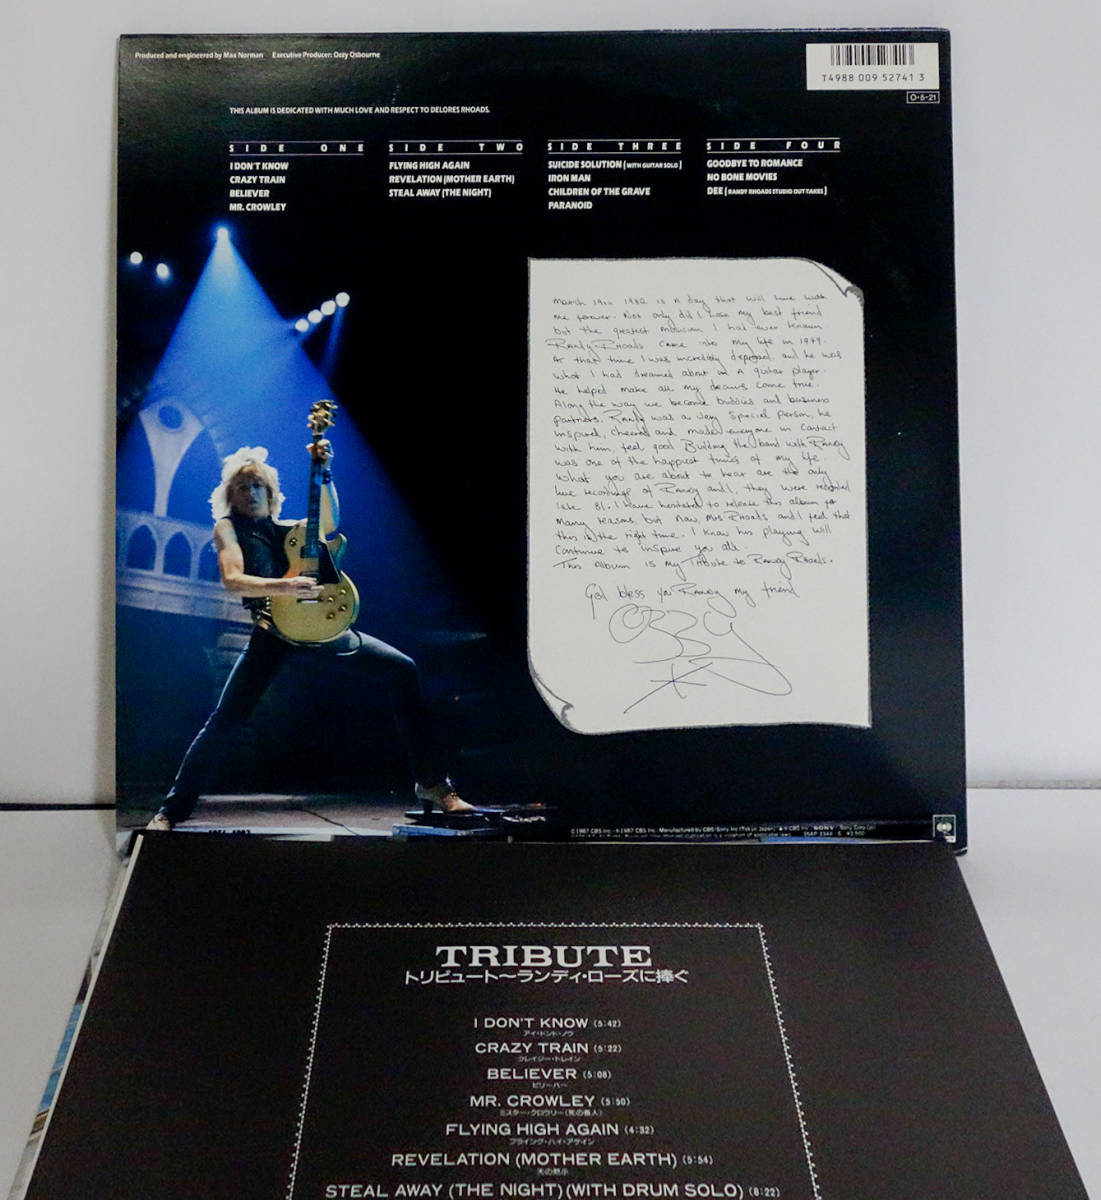 Produced and engineered by Max Norman Executive Producer: Ozzy Osbourne
T4988 009 52741 3
O-5-21
THIS ALBUM IS DEDICATED WITH MUCH LOVE AND RESPECT TO DELORES RHOADS.
SIDE ONE
I DON'T KNOW
CRAZY TRAIN
BELIEVER
MR. CROWLEY
SIDE TWO
FLYING HIGH AGAIN
REVELATION (MOTHER EARTH)
STEAL AWAY (THE NIGHT)
SIDE THREE
SUICIDE SOLUTION (WITH GUITAR SOLO)
IRON MAN
CHILDREN OF THE GRAVE
PARANOID
SIDE FOUR
GOODBYE TO ROMANCE
NO BONE MOVIES
DEE (RANDY RHOADS STUDIO OUT-TAKES)
March 19th 1982 is a day that will live with
me forever. Not only did I lose my best friend
but the greatest musician I had ever known
Randy Rhoads came into my life in 1979.
At that time I was incredibly depressed, and he was
what I had dreamed about in a guitar player.
He helped make all my dreams come true.
Along the way we became buddies and business
partners. Randy was a very special person, he
inspired, cheered and made everyone in contact
with him, feel good. Building the band with Randy
was one of the happiest times of my life
What you are about to hear are the only
live recordings of Randy and I, they were recorded
late 81. I have hesitated to release this album for
many reasons, but now, Mrs Rhoads and I feel that
this is the right time. I know his playing will
continue to inspire you all.
This Album is my Tribute to Randy Rhoads.
God bless you Randy my friend
Ozzy
© 1987 CBS Inc. Manufactured by CBS/Sony Inc. (Tokyo Japan) CBS Inc. SONY Sony Corp.
TRIBUTE
トリビュート〜ランディ・ローズに捧ぐ
I DON'T KNOW (5:42)
アイ・ドント・ノウ
CRAZY TRAIN (5:22)
クレイジー・トレイン
BELIEVER (5:08)
ビリーバー
MR. CROWLEY (5:50)
ミスター・クロウリー(死の番人)
FLYING HIGH AGAIN (4:32)
フライング・ハイ・アゲイン
REVELATION (MOTHER EARTH) (5:54)
天の黙示
STEAL AWAY (THE NIGHT) (WITH DRUM SOLO) (8:22)